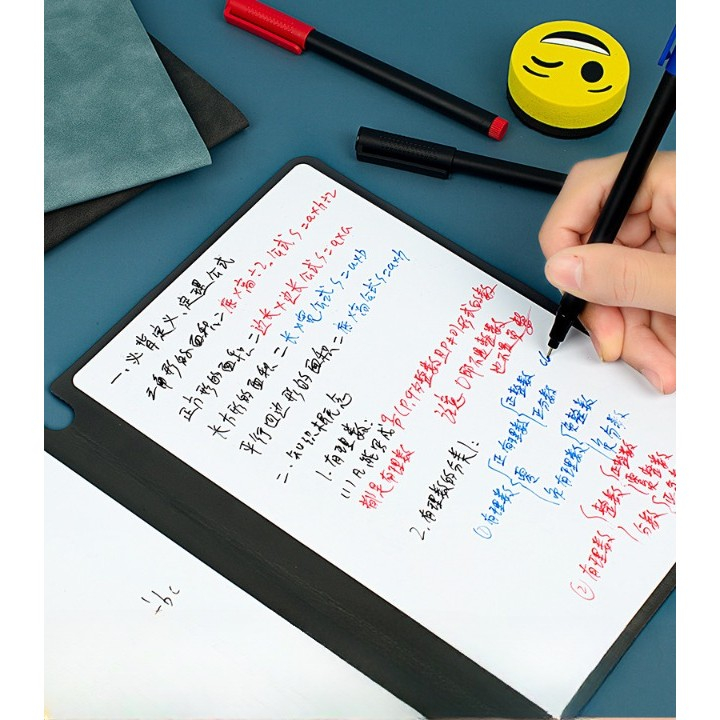 一、必背定义、定理公式
三角形的面积=底×高÷2。公式 S=a×h÷2
正方形的面积=边长×边长 公式 S=a×a
长方形的面积=长×宽 公式 S=a×b
平行四边形的面积=底×高 公式 S=a×h
二、知识概念
1.有理数:
(1)凡能写成 形式的数
都是有理数
注意 0即不是正数 也不是负数
2.有理数的分类:
①有理数 正有理数 正整数 正分数
零
负有理数 负整数 负分数
②有理数 整数 正整数 零 负整数
分数
-bc